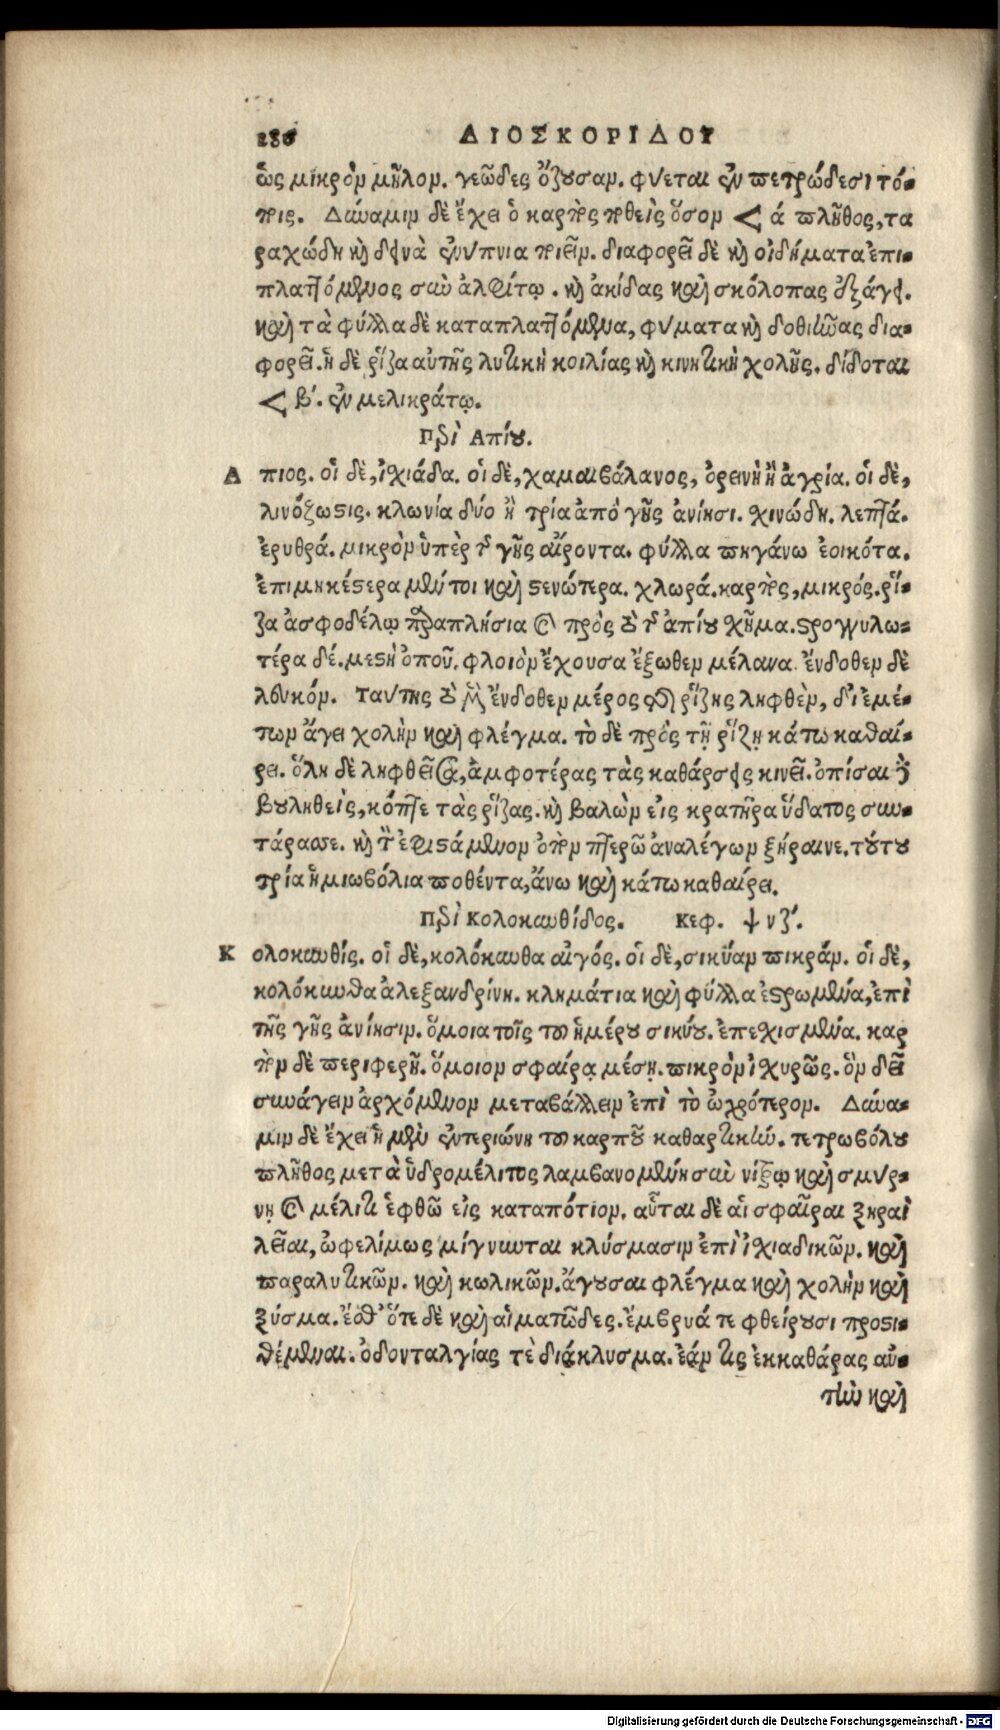 286 ΔΙΟΣΚΟΡΙΔΟΥ
ὡς μικρὸν μῆλον. γεῶδες ὄζουσαν. φύεται ἐν πετρώδεσι τό-
ποις. Δύναμιν δὲ ἔχει ὁ καρπὸς ποθεὶς ὅσον < ά πλῆθος, τα
ραχώδη καὶ δεινὰ ἐνύπνια ποιεῖν. διαφορεῖ δὲ καὶ οἰδήματα ἐπι-
πλαττόμενος σὺν ἀλφίτῳ. καὶ ἀκίδας καὶ σκόλοπας ἐξάγει.
καὶ τὰ φύλλα δὲ καταπλαττόμενα, φύματα καὶ δοθιῆνας δια-
φορεῖ. ἡ δὲ ῥίζα αὐτῆς λυτικὴ κοιλίας καὶ κινητικὴ χολῆς. δίδοται
< β΄. ἐν μελικράτῳ.
Περὶ Απίου.
Α πιος. οἱ δὲ, ἰσχιάδα. οἱ δὲ, χαμαιβάλανος, ὀρεινὴ ἢ ἀγρία. οἱ δὲ,
λινόζωστις. κλωνία δύο ἢ τρία ἀπὸ γῆς ἀνίησι. σχινώδη. λεπτά.
ἐρυθρά. μικρὸν ὑπὲρ τῆς γῆς αἴροντα. φύλλα πηγάνω ἐοικότα.
ἐπιμηκέστερα μέντοι καὶ στενώτερα. χλωρά. καρπὸς, μικρός. ῥί-
ζα ἀσφοδέλῳ παραπλήσια καὶ πρὸς τὸ τῆς ἀπίου σχῆμα. στρογγυλω-
τέρα δέ. μεστὴ ὀποῦ. φλοιὸν ἔχουσα ἔξωθεν μέλανα. ἔνδοθεν δὲ
λευκόν. Ταύτης τὸ μὲν ἔνδοθεν μέρος τῆς ῥίζης ληφθὲν, δι' ἐμέ-
των ἄγει χολὴν καὶ φλέγμα. τὸ δὲ πρὸς τῇ ῥίζῃ κάτω καθαί-
ρει. ὅλη δὲ ληφθεῖσα, ἀμφοτέρας τὰς καθάρσεις κινεῖ. ὀπίσαι δὲ
βουληθεὶς, κόπτε τὰς ῥίζας. καὶ βαλὼν εἰς κρατῆρα ὕδατος συν-
τάρασσε. καὶ τὸν ἐφιστάμενον ὀπὸν πτερῶ ἀναλέγων ξήραινε. τούτου
τρία ἡμιωβόλια ποθέντα, ἄνω καὶ κάτω καθαίρει.
Περὶ Κολοκυνθίδος. Κεφ. ψνζ΄.
Κ ολοκυνθίς. οἱ δὲ, κολόκυνθα αἰγός. οἱ δὲ, σικύαν πικράν. οἱ δὲ,
κολόκυνθα ἀλεξανδρίνη. κλημάτια καὶ φύλλα ἐστρωμένα, ἐπὶ
τῆς γῆς ἀνίησιν. ὅμοια τοῖς τοῦ ἡμέρου σικύου. ἐπεσχισμένα. καρ
πὸν δὲ περιφερῆ. ὅμοιον σφαίρᾳ μέσῃ. πικρὸν ἰσχυρῶς. ὃν δεῖ
συνάγειν ἀρχόμενον μεταβάλλειν ἐπὶ τὸ ὠχρότερον. Δύνα-
μιν δὲ ἔχει ἡ μὲν ἐντεριώνη τοῦ καρποῦ καθαρτικήν. τετρωβόλου
πλῆθος μετὰ ὑδρομέλιτος λαμβανομένη σὺν νίτρῳ καὶ σμύρ-
νῃ καὶ μέλιτι ἑφθῶ εἰς καταπότιον. αὗται δὲ αἱ σφαῖραι ξηραὶ
λεῖαι, ὠφελίμως μίγνυνται κλύσμασιν ἐπὶ ἰσχιαδικῶν. καὶ
παραλυτικῶν. καὶ κωλικῶν. ἄγουσαι φλέγμα καὶ χολὴν καὶ
ξύσμα. ἔσθ' ὅτε δὲ καὶ αἱματῶδες. ἔμβρυά τε φθείρουσι προστι-
θέμεναι. ὀδονταλγίας τὲ διάκλυσμα. ἐάν τις ἐκκαθάρας αὐ-
τὴν καὶ
Digitalisierung gefördert durch die Deutsche Forschungsgemeinschaft - DFG